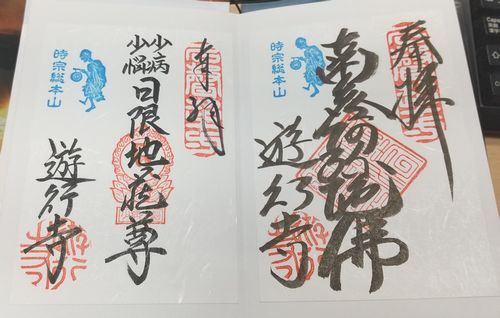 奉拝
南無阿弥陀佛
遊行寺
時宗総本山
奉拝
少病少悩
日限地蔵尊
遊行寺
時宗総本山